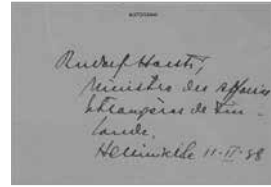 AUTOGRAMM
Rudolf Holsti,
Ministre des Affaires
Etrangères de Fin-
lande.
11-II-38